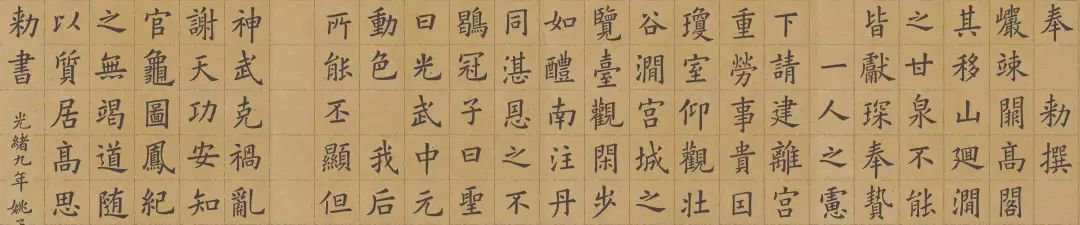 奉勅撰
巖竦闕髙閣
其移山迴澗
之甘泉不能
皆獻琛奉贄
一人之慮
下請建離宮
重勞事貴囙
瓊室仰觀壯
谷澗宮城之
覽臺觀閑步
如醴南注丹
同湛恩之不
鶡冠子曰聖
曰光武中元
動色我后
所能丕顯但
神武克禍亂
謝天功安知
官龜圖鳳紀
之無竭道随
以質居髙思
勅書
光緒九年 姚